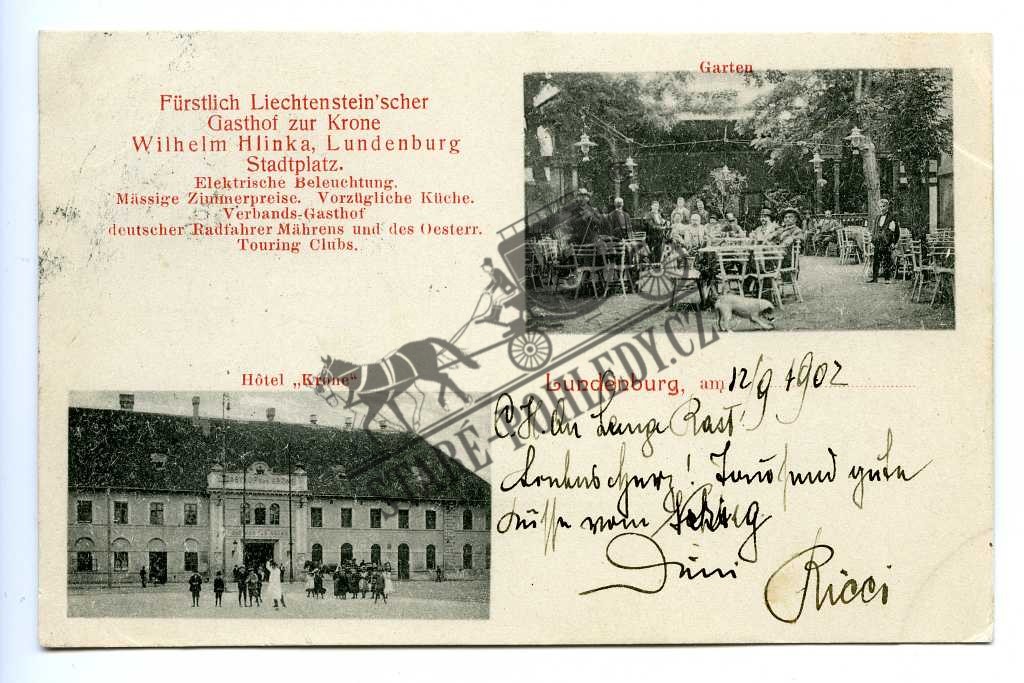 Fürstlich Liechtenstein'scher
Gasthof zur Krone
Wilhelm Hlinka, Lundenburg
Stadtplatz.
Elektrische Beleuchtung.
Mässige Zimmerpreise. Vorzügliche Küche.
Verbands-Gasthof
deutscher Radfahrer Mährens und des Oesterr.
Touring Clubs.
Garten
Hôtel „Krone“
STARÉ-POHLEDY.CZ
Lundenburg, am 12/9 1902
Lange Rast
Tausend gute
Küsse vom
Ricci